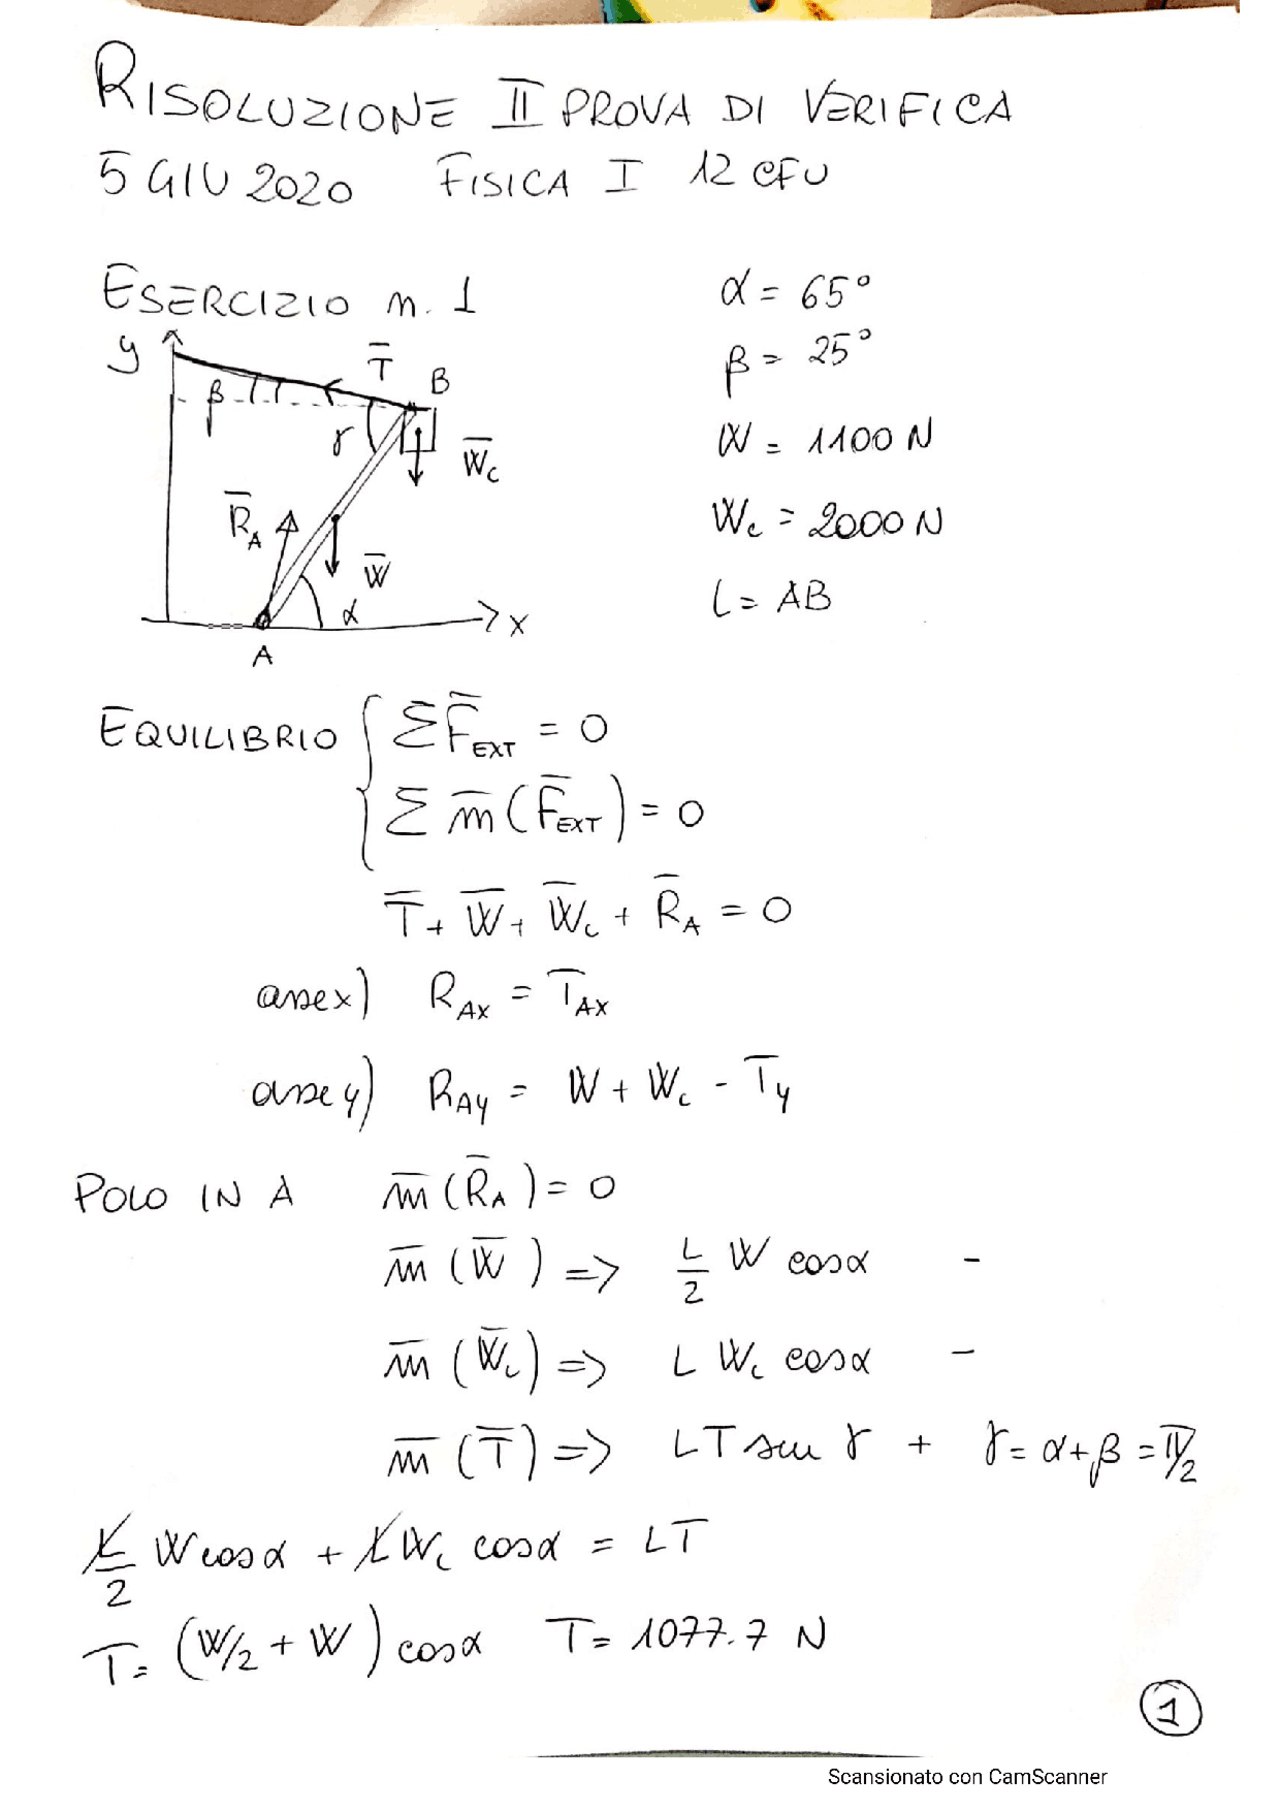 RISOLUZIONE II PROVA DI VERIFICA
5 GIU 2020 FISICA I 12 CFU
ESERCIZIO n. 1
α = 65°
β = 25°
W = 1100 N
Wc = 2000 N
L = AB
y
T̅
B
β
γ
W̅c
R̅A
W̅
α
x
A
EQUILIBRIO { ΣF̅EXT = 0
Σ m̅ (F̅EXT) = 0
T̅ + W̅ + W̅c + R̅A = 0
asse x) RAX = TAX
asse y) RAY = W + Wc - Ty
POLO IN A m̅ (R̅A) = 0
m̅ (W̅) => L/2 W cosα -
m̅ (W̅c) => L Wc cosα -
m̅ (T̅) => LT sin γ + γ = α+β = π/2
L/2 W cosα + L Wc cosα = LT
T = (W/2 + W) cosα T = 1077.7 N
1
Scansionato con CamScanner